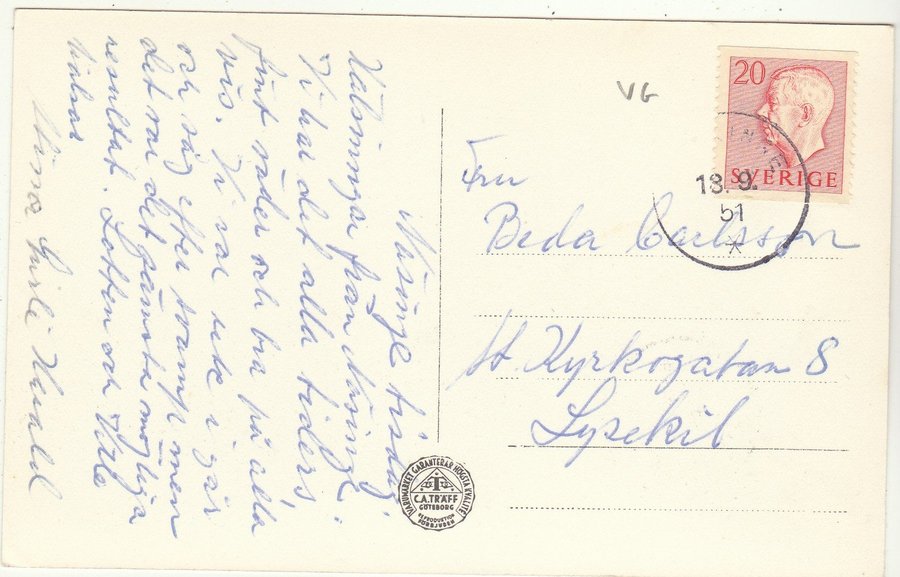 Näsinge tisdag.
Hälsningar från Näsinge.
Vi har det alla tiders
fint väder och bra på alla
vis. Vi var ute i går
och såg efter svamp men
det var det sämsta möjliga
resultat. Lotten och Ville
hälsar
Mina Gurli Harald
VG
20
SVERIGE
18. 9.
51
Fru
Beda Carlsson
St Kyrkogatan 8
Lysekil
VARUMÄRKET GARANTERAR HÖGSTA KVALITÉ
C.A. TRÄFF
GÖTEBORG
REPRODUKTION
FÖRBJUDEN